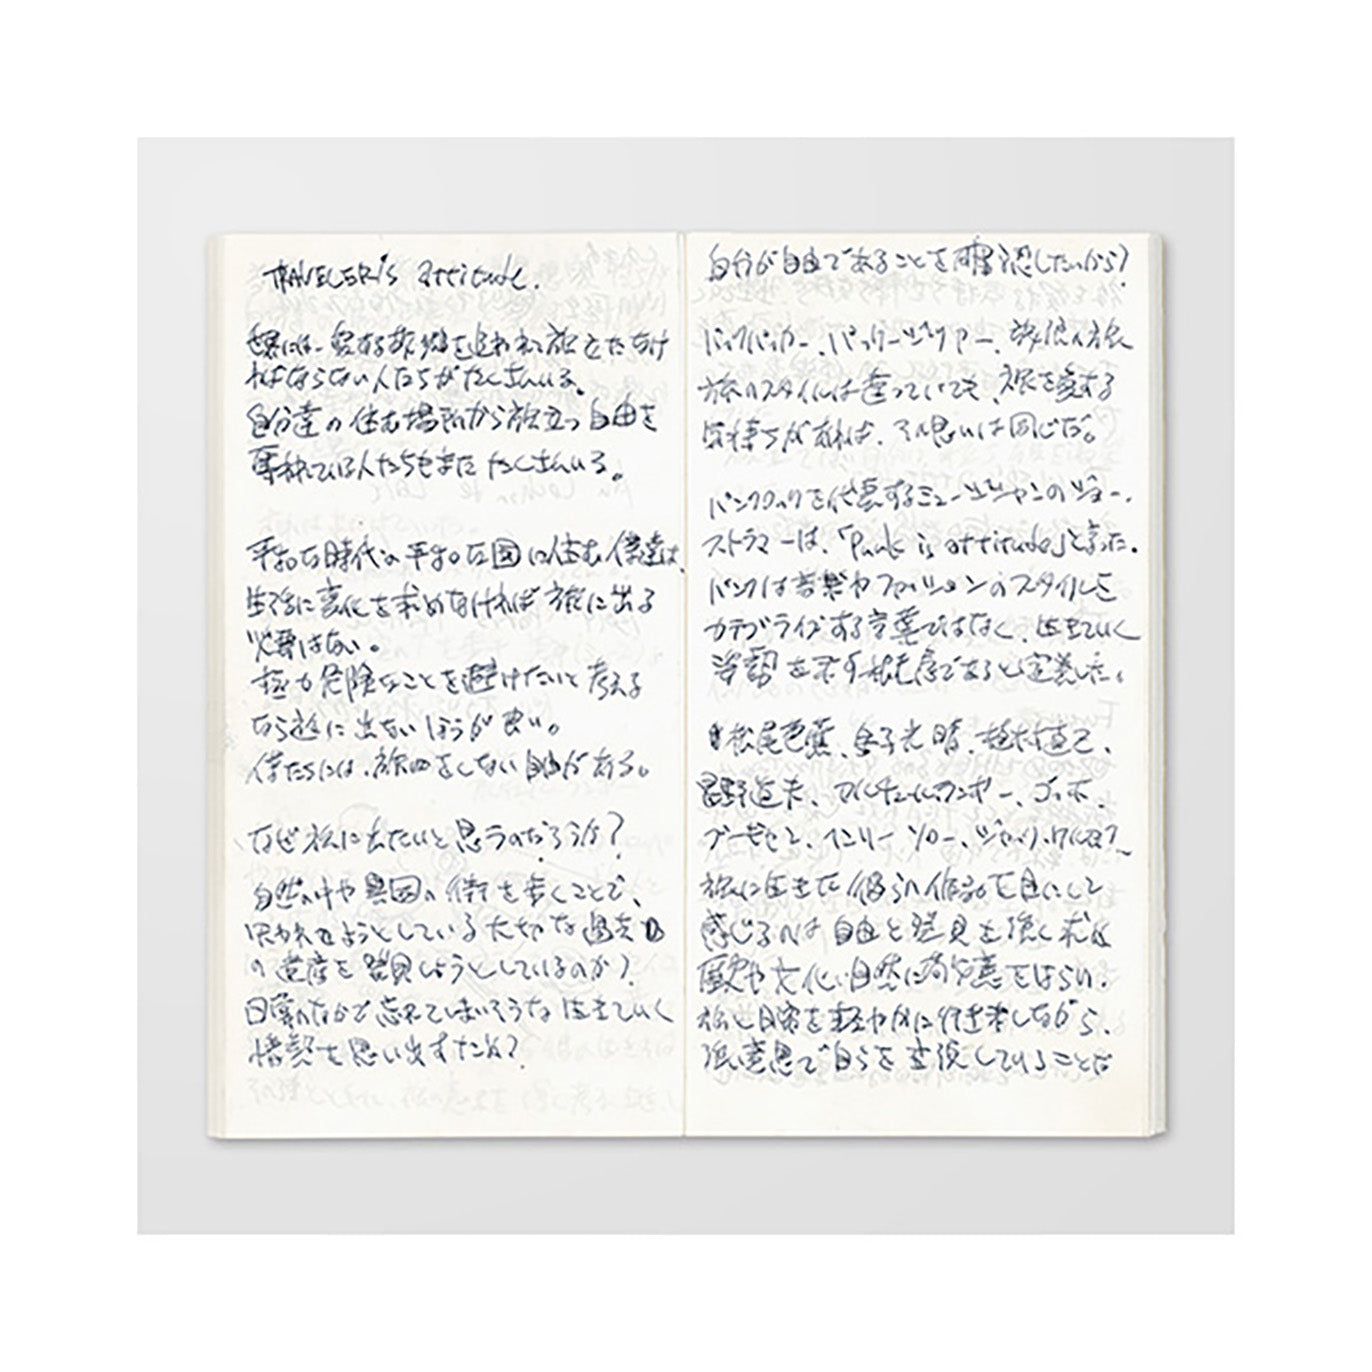 TRAVELER'S attitude.
世界には、愛する故郷を追われて旅立たなけ
ればならない人たちがたくさんいる。
自分達の住む場所から旅立つ自由を
奪われている人たちもまたたくさんいる。
平和な時代の平和な国に住む僕達は、
生活に変化を求めなければ旅に出る
必要はない。
極力危険なことを避けたいと考える
なら旅に出ないほうが良い。
僕たちには、旅をしない自由がある。
なぜ旅に出たいと思うのだろうか?
自然の中や異国の街を歩くことで、
失われようとしている大切な過去
の遺産を発見しようとしているのか?
日常のなかで忘れてしまいそうな生きていく
情熱を思い出すため?
自分が自由であることを確認したいから?
バックパッカー、パッケージツアー、放浪の旅
旅のスタイルは違っていても、旅を愛する
気持ちがあれば、その思いは同じだ。
パンクロックを代表するミュージシャンのジョー・
ストラマーは、「Punk is attitude」と言った。
パンクは音楽やファッションのスタイルを
カテゴライズする言葉ではなく、生きていく
姿勢を示す根元であると定義した。
松尾芭蕉、金子光晴、植村直己、
星野道夫、アルチュール・ランボー、ゴッホ、
ブルーセ、ヘンリー・ソロー、ジャック・ケルアック
旅に生きた彼らの作品を目にして
感じるのは自由と発見を強く求め
歴史や文化、自然に敬意をはらい、
旅と日常を軽やかに行き来しながら、
強い意思で自らを表現していることだ